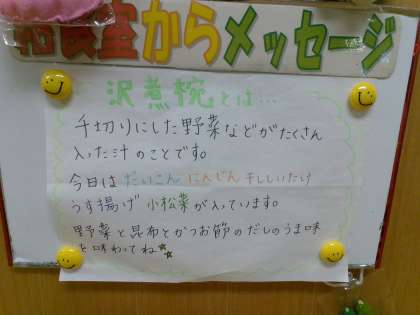 和食室からメッセージ
沢煮椀とは…
千切りにした野菜などがたくさん
入った汁のことです。
今日は だいこん にんじん 干ししいたけ
うす揚げ 小松菜 が入っています。
野菜と昆布とかつお節のだしのうま味
を味わってね